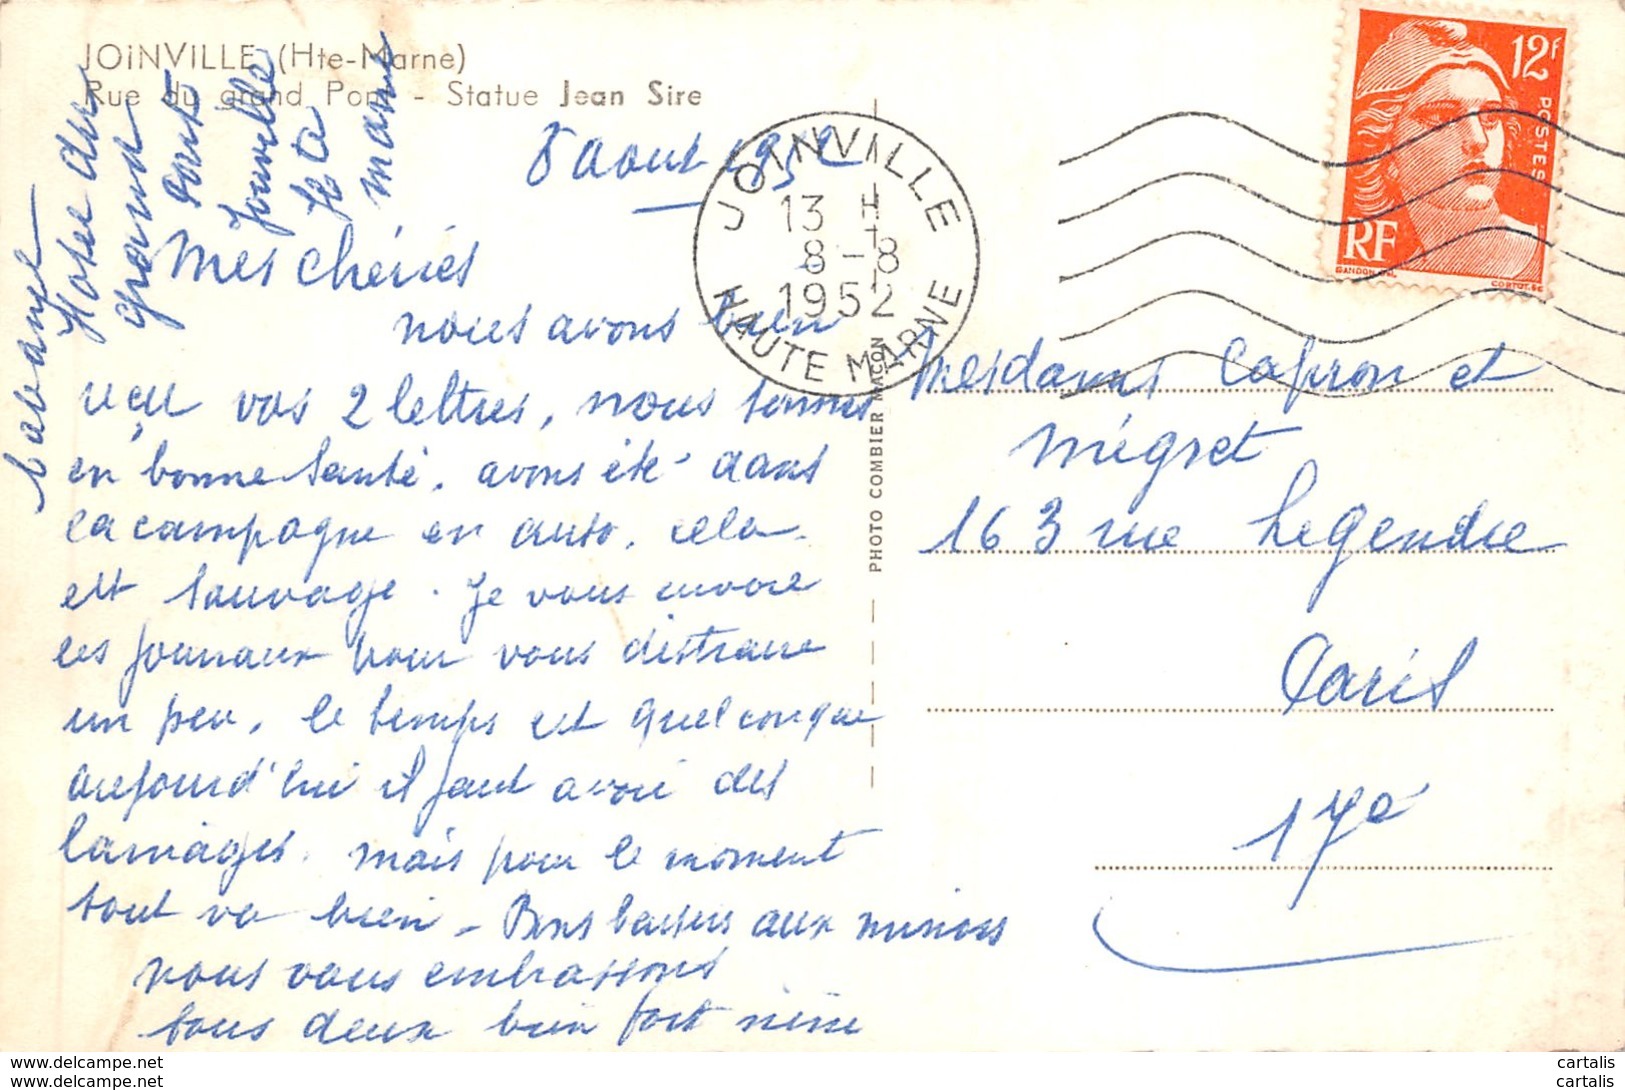 JOiNVILLE (Hte-Marne)
Rue du grand Pont - Statue Jean Sire
Hotel du
grand
pont
Joinville
Hte
Marne
8 aout 1952
JOINVILLE
13 H
8-8
1952
HAUTE MARNE
12F
POSTES
RF
GANDON
CORTOT.SC
Mes chéries
nous avons bien
reçu vos 2 lettres, nous sommes
en bonne santé, avons été dans
la campagne en auto, cela
est sauvage. Je vous envoie
ces journaux pour vous distraire
un peu, le temps est quelconque
aujourd'hui il faut avoir des
lainages, mais pour le moment
tout va bien - Bons baisers aux minous
nous vous embrassons
tous deux bien fort
PHOTO COMBIER MACON
Mesdames Capron et
Mégret
163 rue Legendre
Paris
17e
cartalis
cartalis
cartalis
cartalis